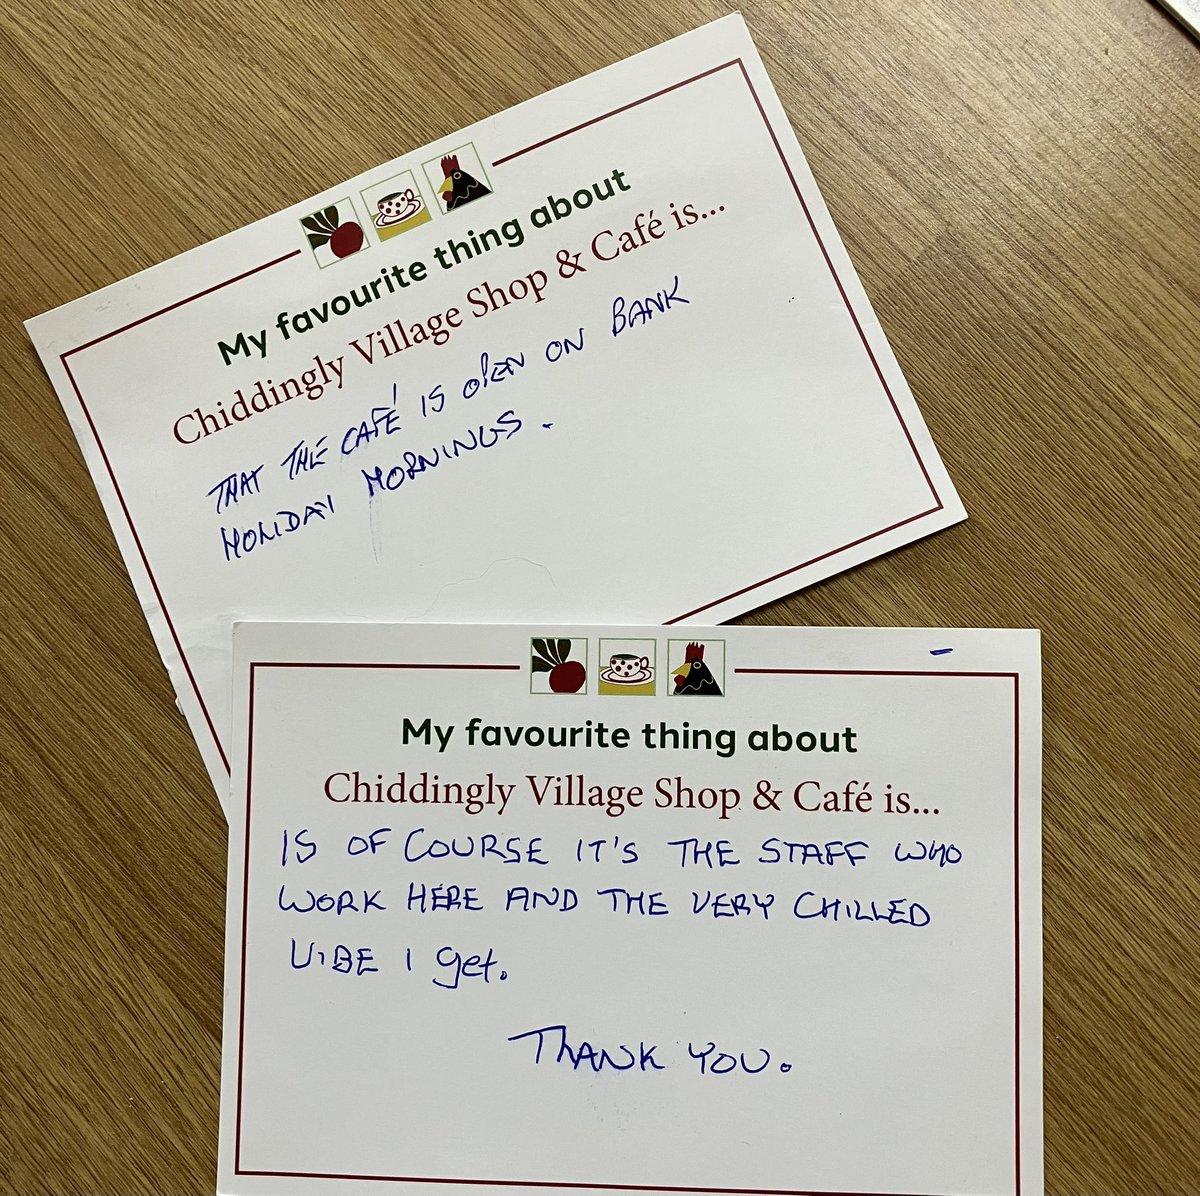 My favourite thing about
Chiddingly Village Shop & Café is...
THAT THE CAFÉ IS OPEN ON BANK
HOLIDAY MORNINGS.
My favourite thing about
Chiddingly Village Shop & Café is...
IS OF COURSE IT'S THE STAFF WHO
WORK HERE AND THE VERY CHILLED
VIBE I get.
THANK YOU.